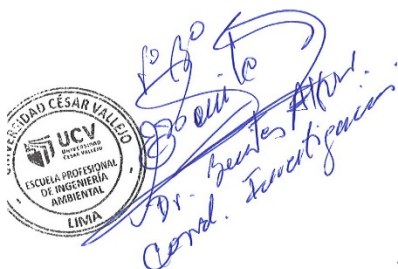 Vº Bº
UNIVERSIDAD CÉSAR VALLEJO
UCV
UNIVERSIDAD
CÉSAR VALLEJO
ESCUELA PROFESIONAL
DE INGENIERÍA
AMBIENTAL
LIMA
Dr. Benites
Coord. Investigación